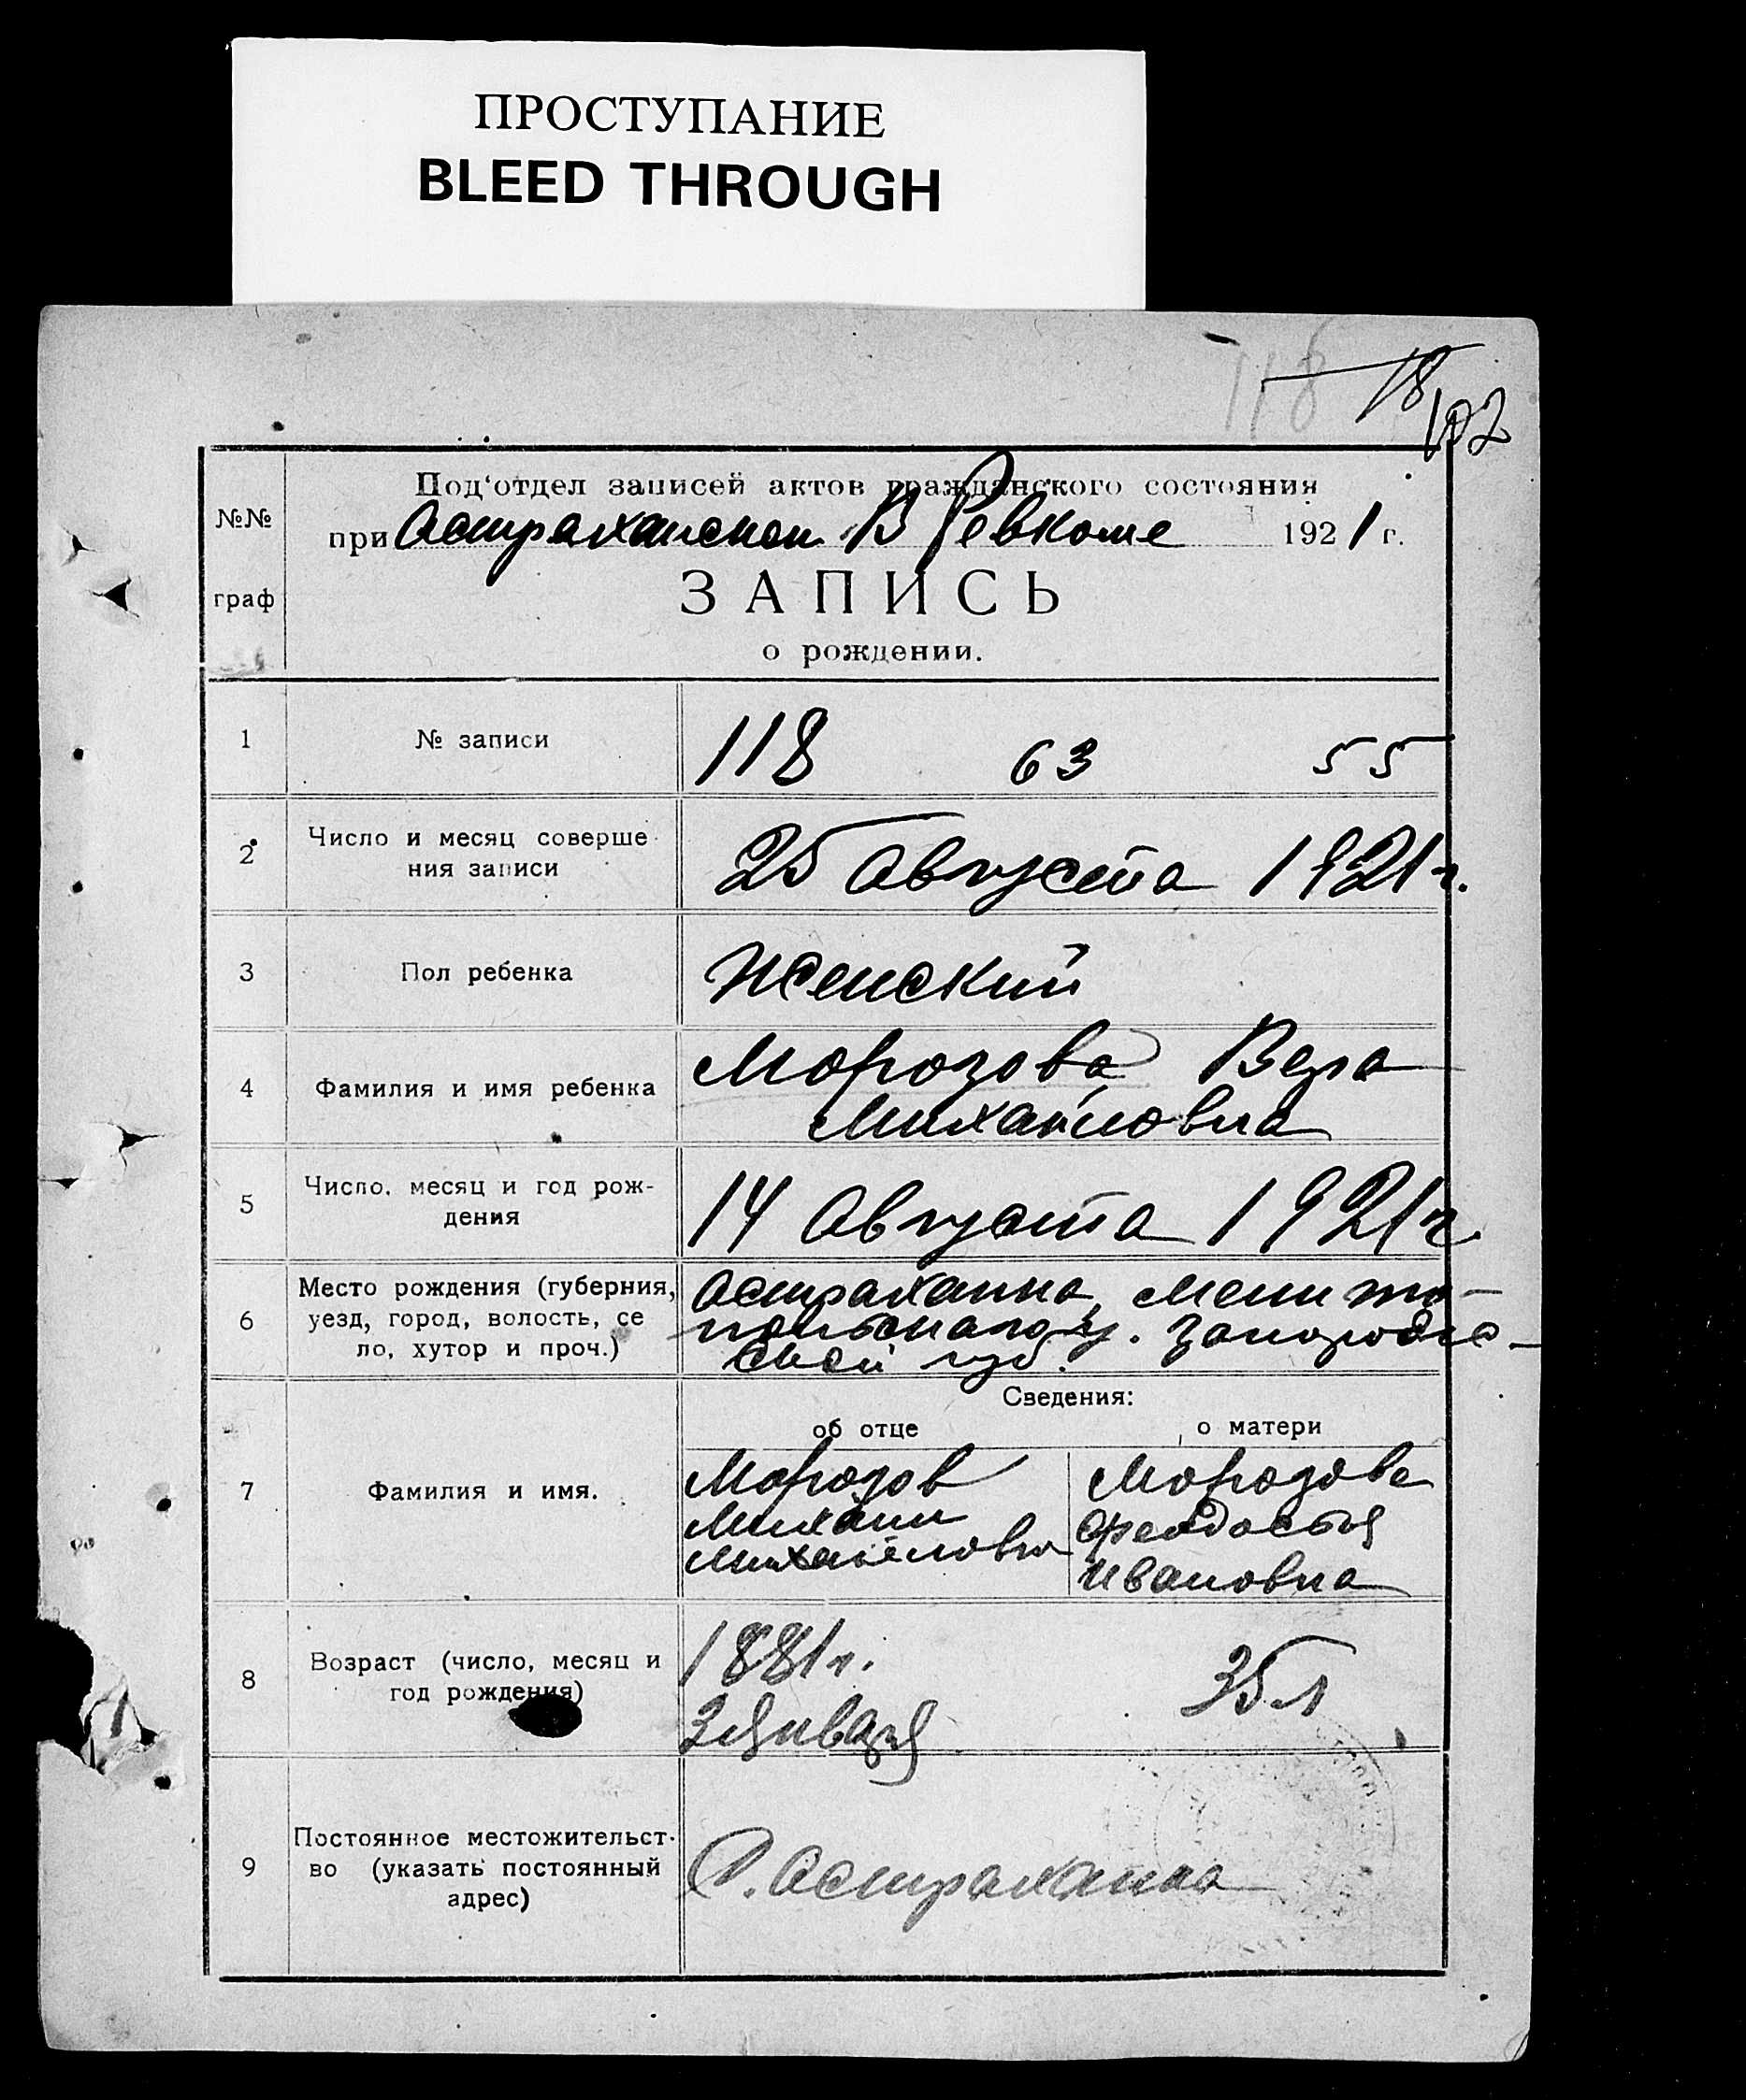 ПРОСТУПАНИЕ
BLEED THROUGH
118 18
102
№№
граф
Под‘отдел записей актов гражданского состояния
при Астраханском В Ревкоме 1921 г.
ЗАПИСЬ
о рождении.
1 № записи 118 63 55
2 Число и месяц соверше
ния записи 25 Августа 1921 г.
3 Пол ребенка Женский
4 Фамилия и имя ребенка Морозова Вера
Михайловна
5 Число, месяц и год рож-
дения 14 Августа 1921 г.
6 Место рождения (губерния,
уезд, город, волость, се
ло, хутор и проч.)
Астраханка, Мелито-
польского у. Запорожс-
ской губ.
Сведения:
об отце о матери
7 Фамилия и имя.
Морозов
Михаил
Михайлович
Морозова
Феодосья
Ивановна
8 Возраст (число, месяц и
год рождения)
1881 г.
3 Января
35 л
9 Постоянное местожительст-
во (указать постоянный
адрес)
С. Астраханка